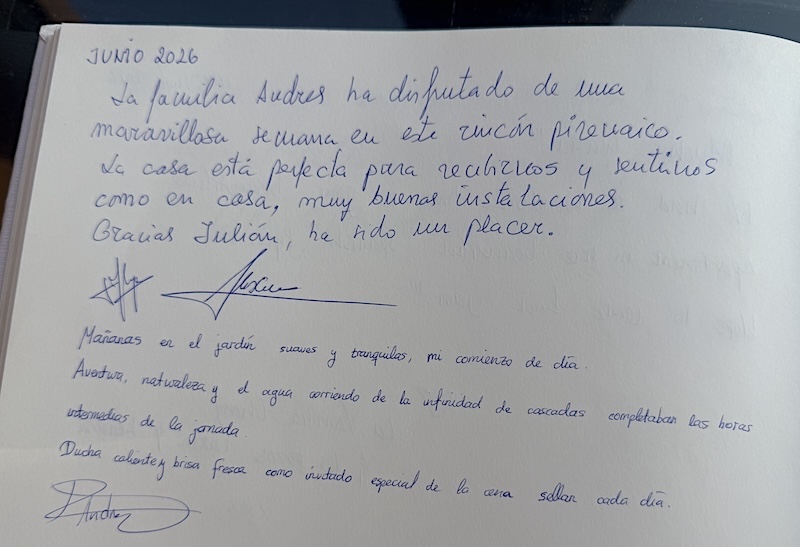 JUNIO 2026
La familia Andres ha disfrutado de una
maravillosa semana en este rincón pirenaico.
La casa está perfecta para recibirnos y sentirnos
como en casa, muy buenas instalaciones.
Gracias Julián, ha sido un placer.
Mañanas en el jardín suaves y tranquilas, mi comienzo de día.
Aventura, naturaleza y el agua corriendo de la infinidad de cascadas completaban las horas
intermedias de la jornada.
Ducha caliente y brisa fresca como invitado especial de la cena sellar cada día.
Andres